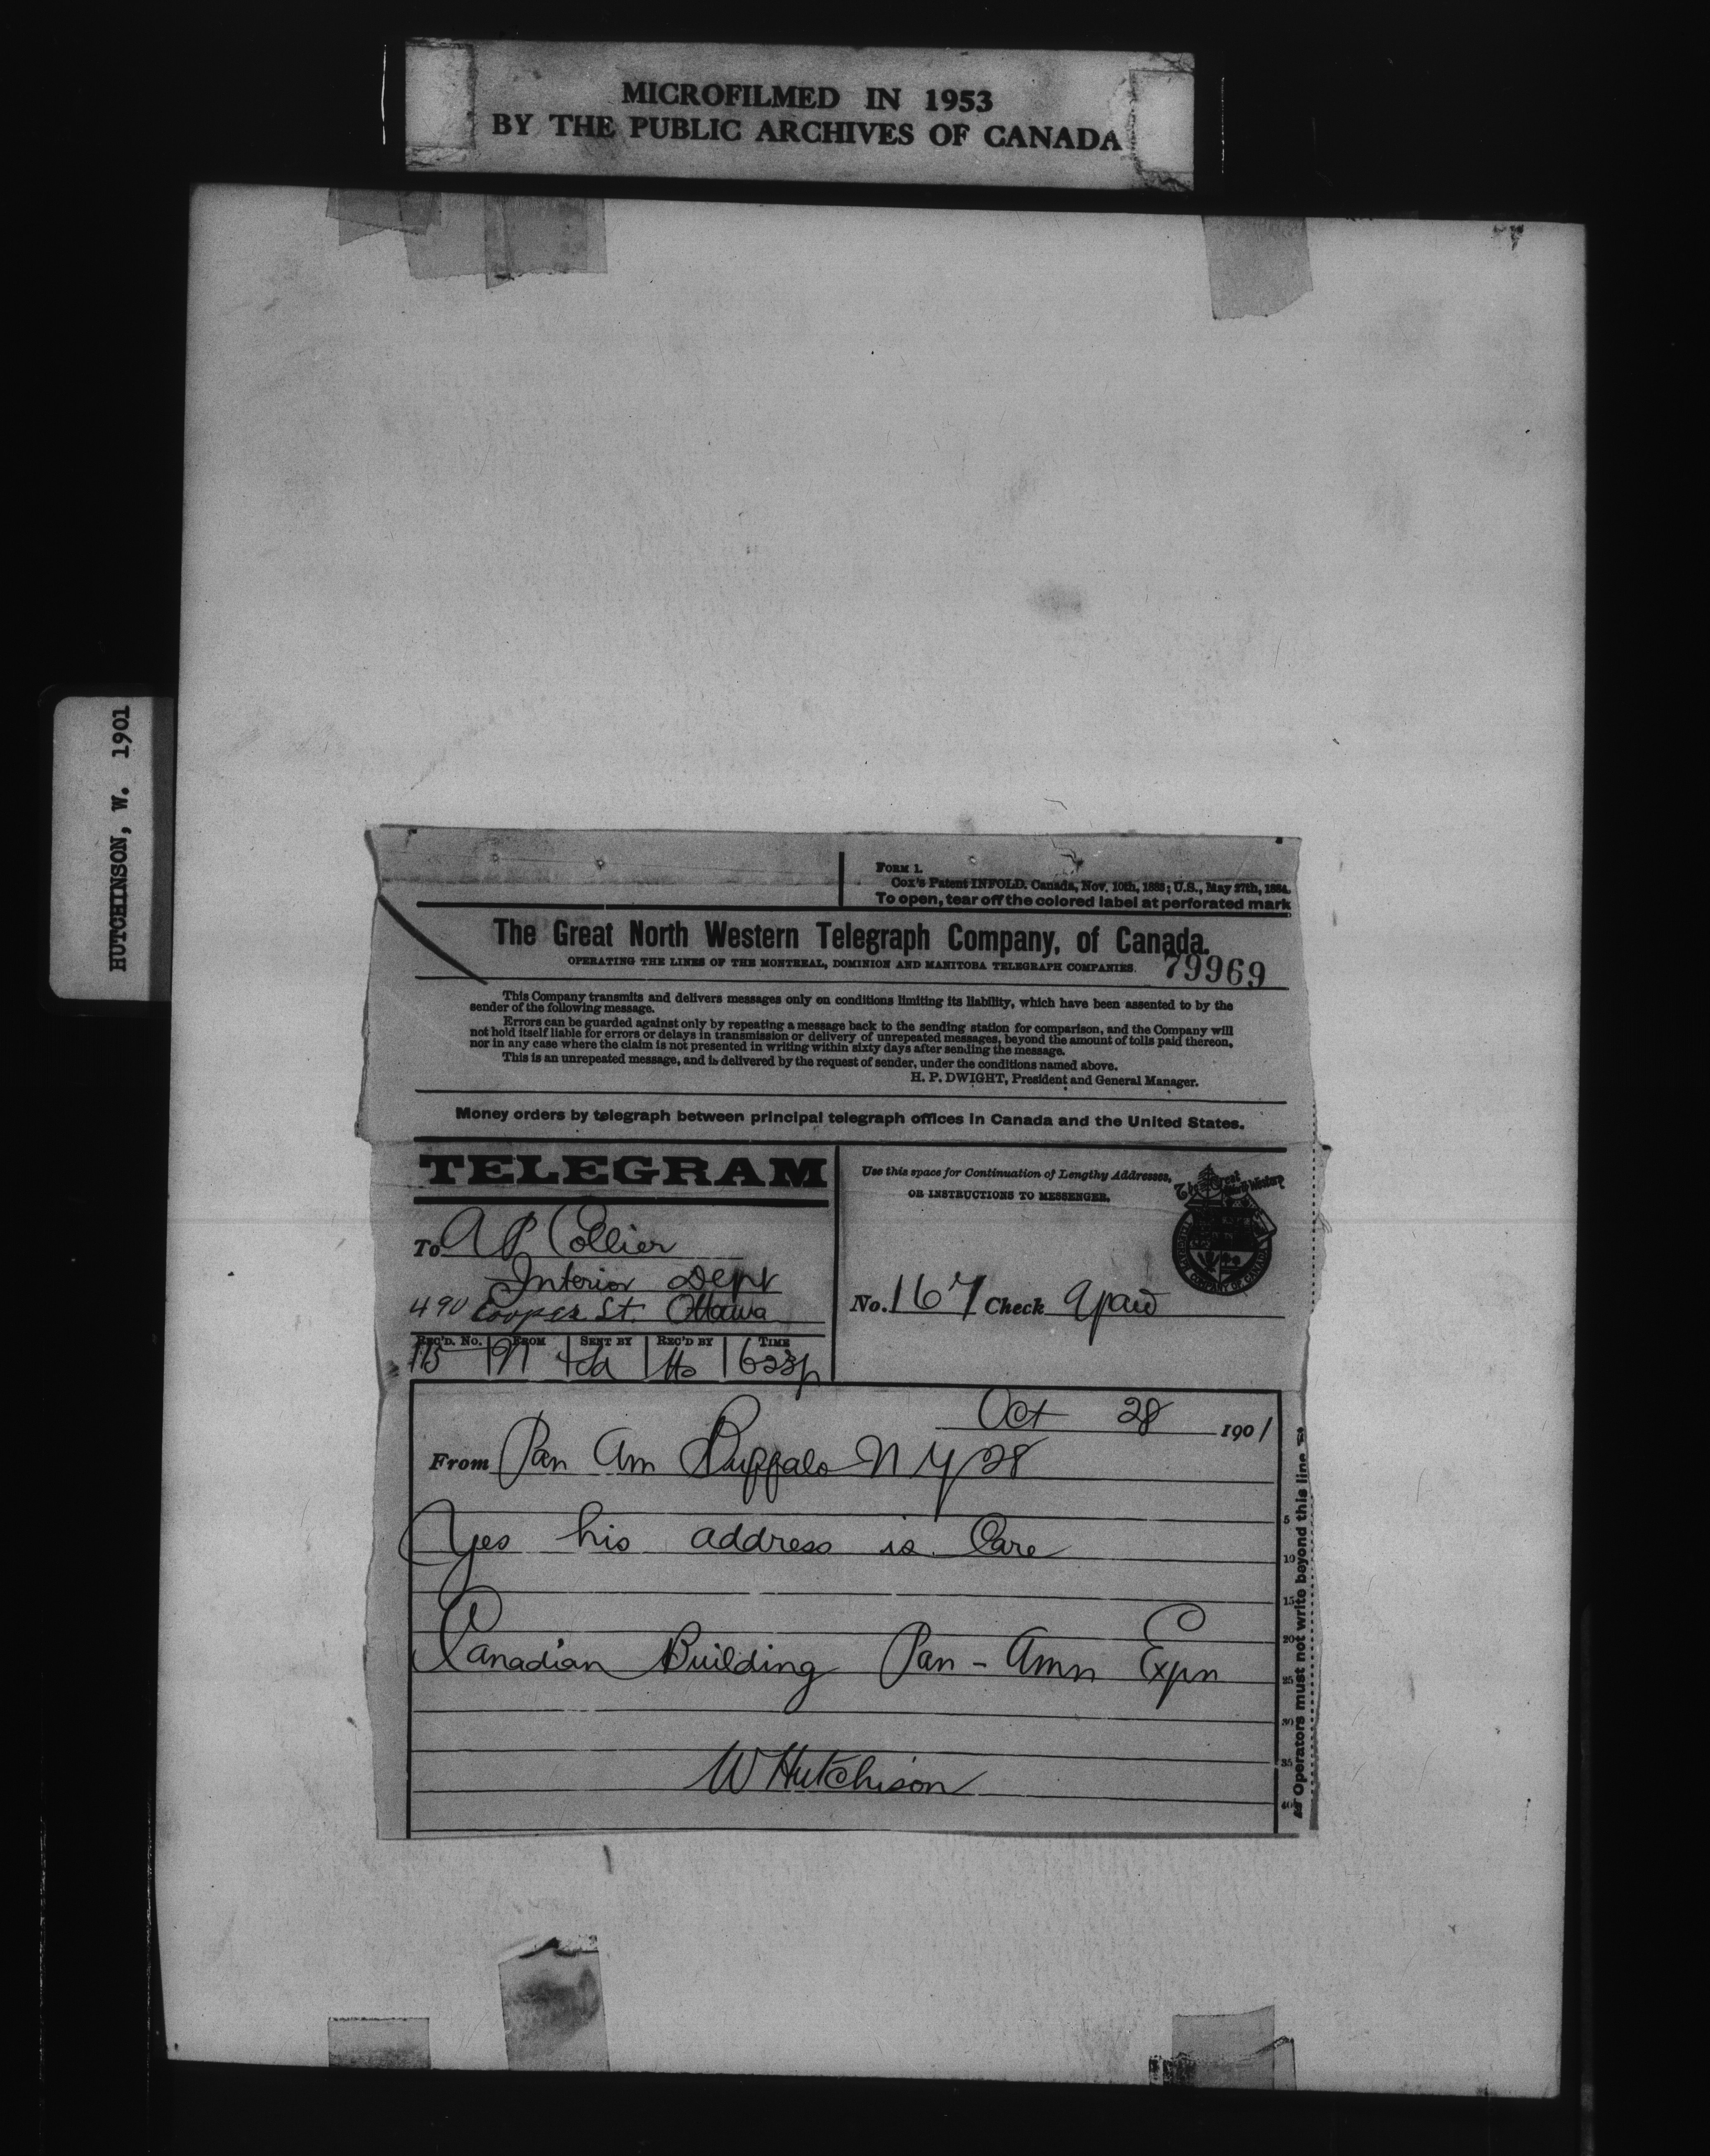 MICROFILMED IN 1953
BY THE PUBLIC ARCHIVES OF CANADA
HUTCHINSON, W. 1901
FORM 1.
Cox's Patent INFOLD. Canada, Nov. 10th, 1883; U.S., May 27th, 1884.
To open, tear off the colored label at perforated mark
The Great North Western Telegraph Company, of Canada.
OPERATING THE LINES OF THE MONTREAL, DOMINION AND MANITOBA TELEGRAPH COMPANIES.
79969
This Company transmits and delivers messages only on conditions limiting its liability, which have been assented to by the
sender of the following message.
Errors can be guarded against only by repeating a message back to the sending station for comparison, and the Company will
not hold itself liable for errors or delays in transmission or delivery of unrepeated messages, beyond the amount of tolls paid thereon,
nor in any case where the claim is not presented in writing within sixty days after sending the message.
This is an unrepeated message, and is delivered by the request of sender, under the conditions named above.
H. P. DWIGHT, President and General Manager.
Money orders by telegraph between principal telegraph offices in Canada and the United States.
TELEGRAM
Use this space for Continuation of Lengthy Addresses,
OR INSTRUCTIONS TO MESSENGER.
The Great North Western
TELEGRAPH COMPANY OF CANADA
To A P Collier
Interior Dept
490 Cooper St. Ottawa
No. 167 Check 9 paid
REC'D. No. FROM SENT BY REC'D BY TIME
115 N
Oct 28 1901
From Pan Am Buffalo N Y 28
Yes his address is Care
Canadian Building Pan - Amn Expn
W Hutchison
5
10
15
20
25
30
35
40
Operators must not write beyond this line